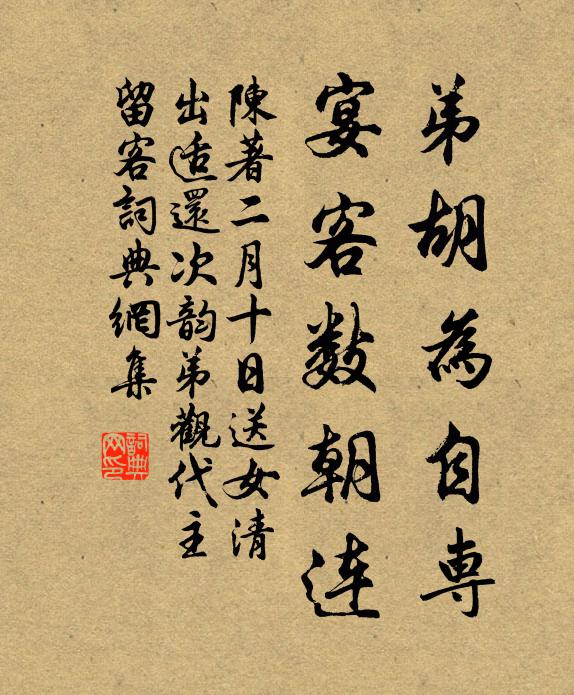 弟胡為自専
宴客數朝連
陳著二月十日送女清
出适還次韵弟觀代主
留客詞典網集
詞典
网印